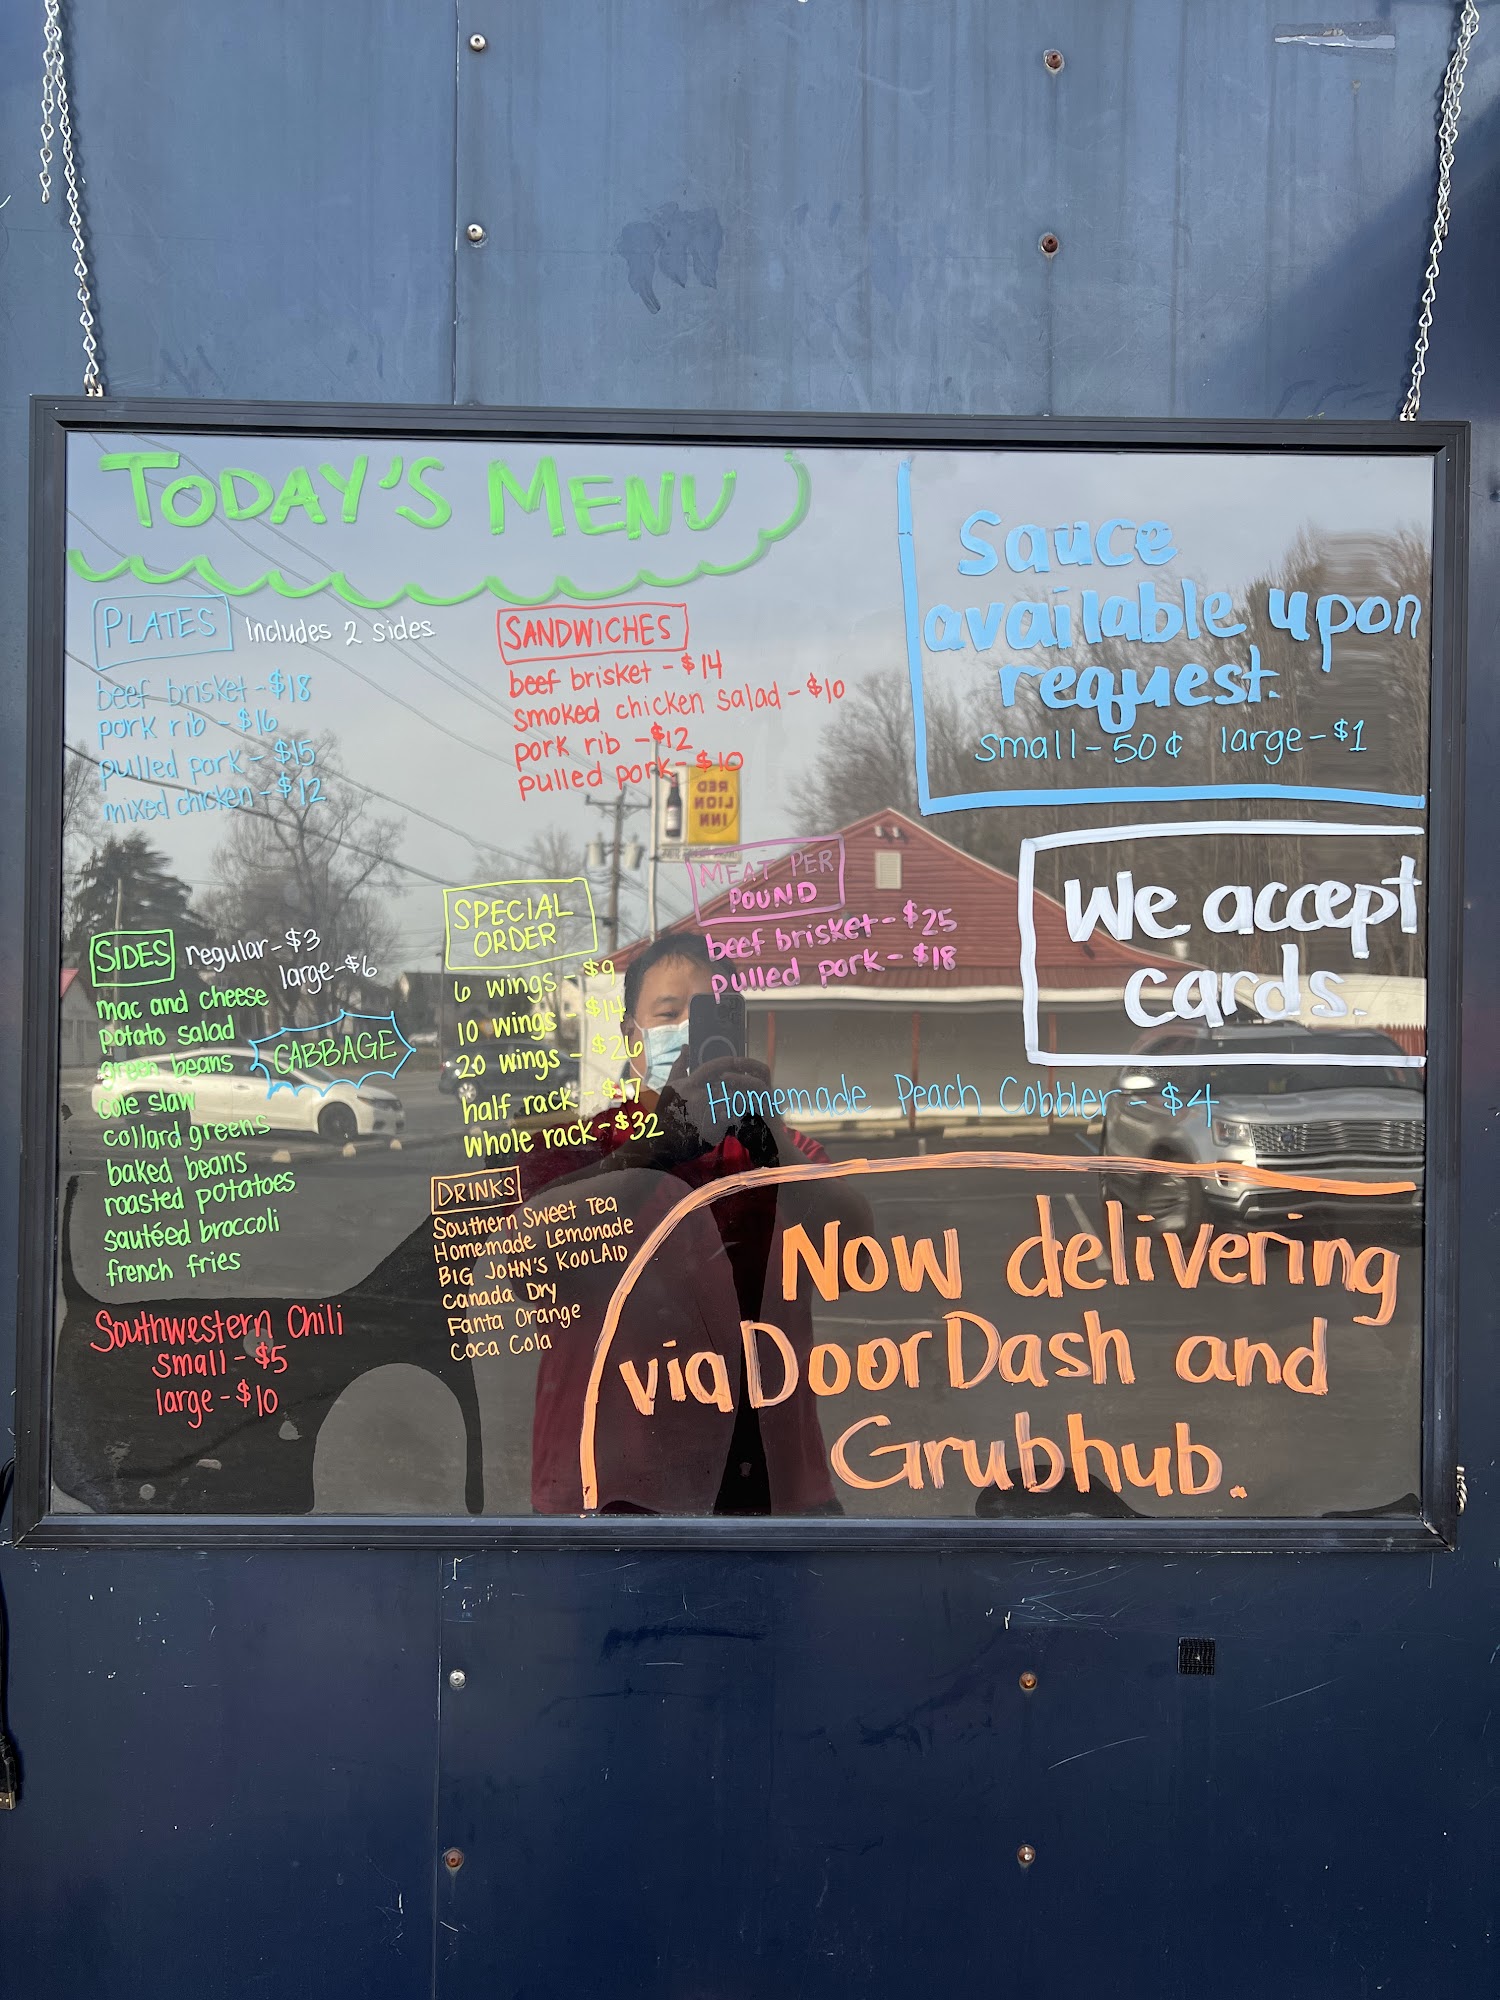 TODAY'S MENU
PLATES Includes 2 sides
beef brisket - $18
pork rib - $16
pulled pork - $15
mixed chicken - $12
SANDWICHES
beef brisket - $14
smoked chicken salad - $10
pork rib - $12
pulled pork - $10
Sauce
available upon
request.
small - 50¢ large - $1
RED
LION
INN
MEAT PER
POUND
beef brisket - $25
pulled pork - $18
We accept
cards.
SIDES regular - $3
large - $6
mac and cheese
potato salad
green beans
CABBAGE
cole slaw
collard greens
baked beans
roasted potatoes
sautéed broccoli
french fries
SPECIAL
ORDER
6 wings - $9
10 wings - $14
20 wings - $26
half rack - $17
whole rack - $32
Homemade Peach Cobbler - $4
DRINKS
Southern Sweet Tea
Homemade Lemonade
BIG JOHN'S KOOLAID
Canada Dry
Fanta Orange
Coca Cola
Southwestern Chili
small - $5
large - $10
Now delivering
via DoorDash and
Grubhub.